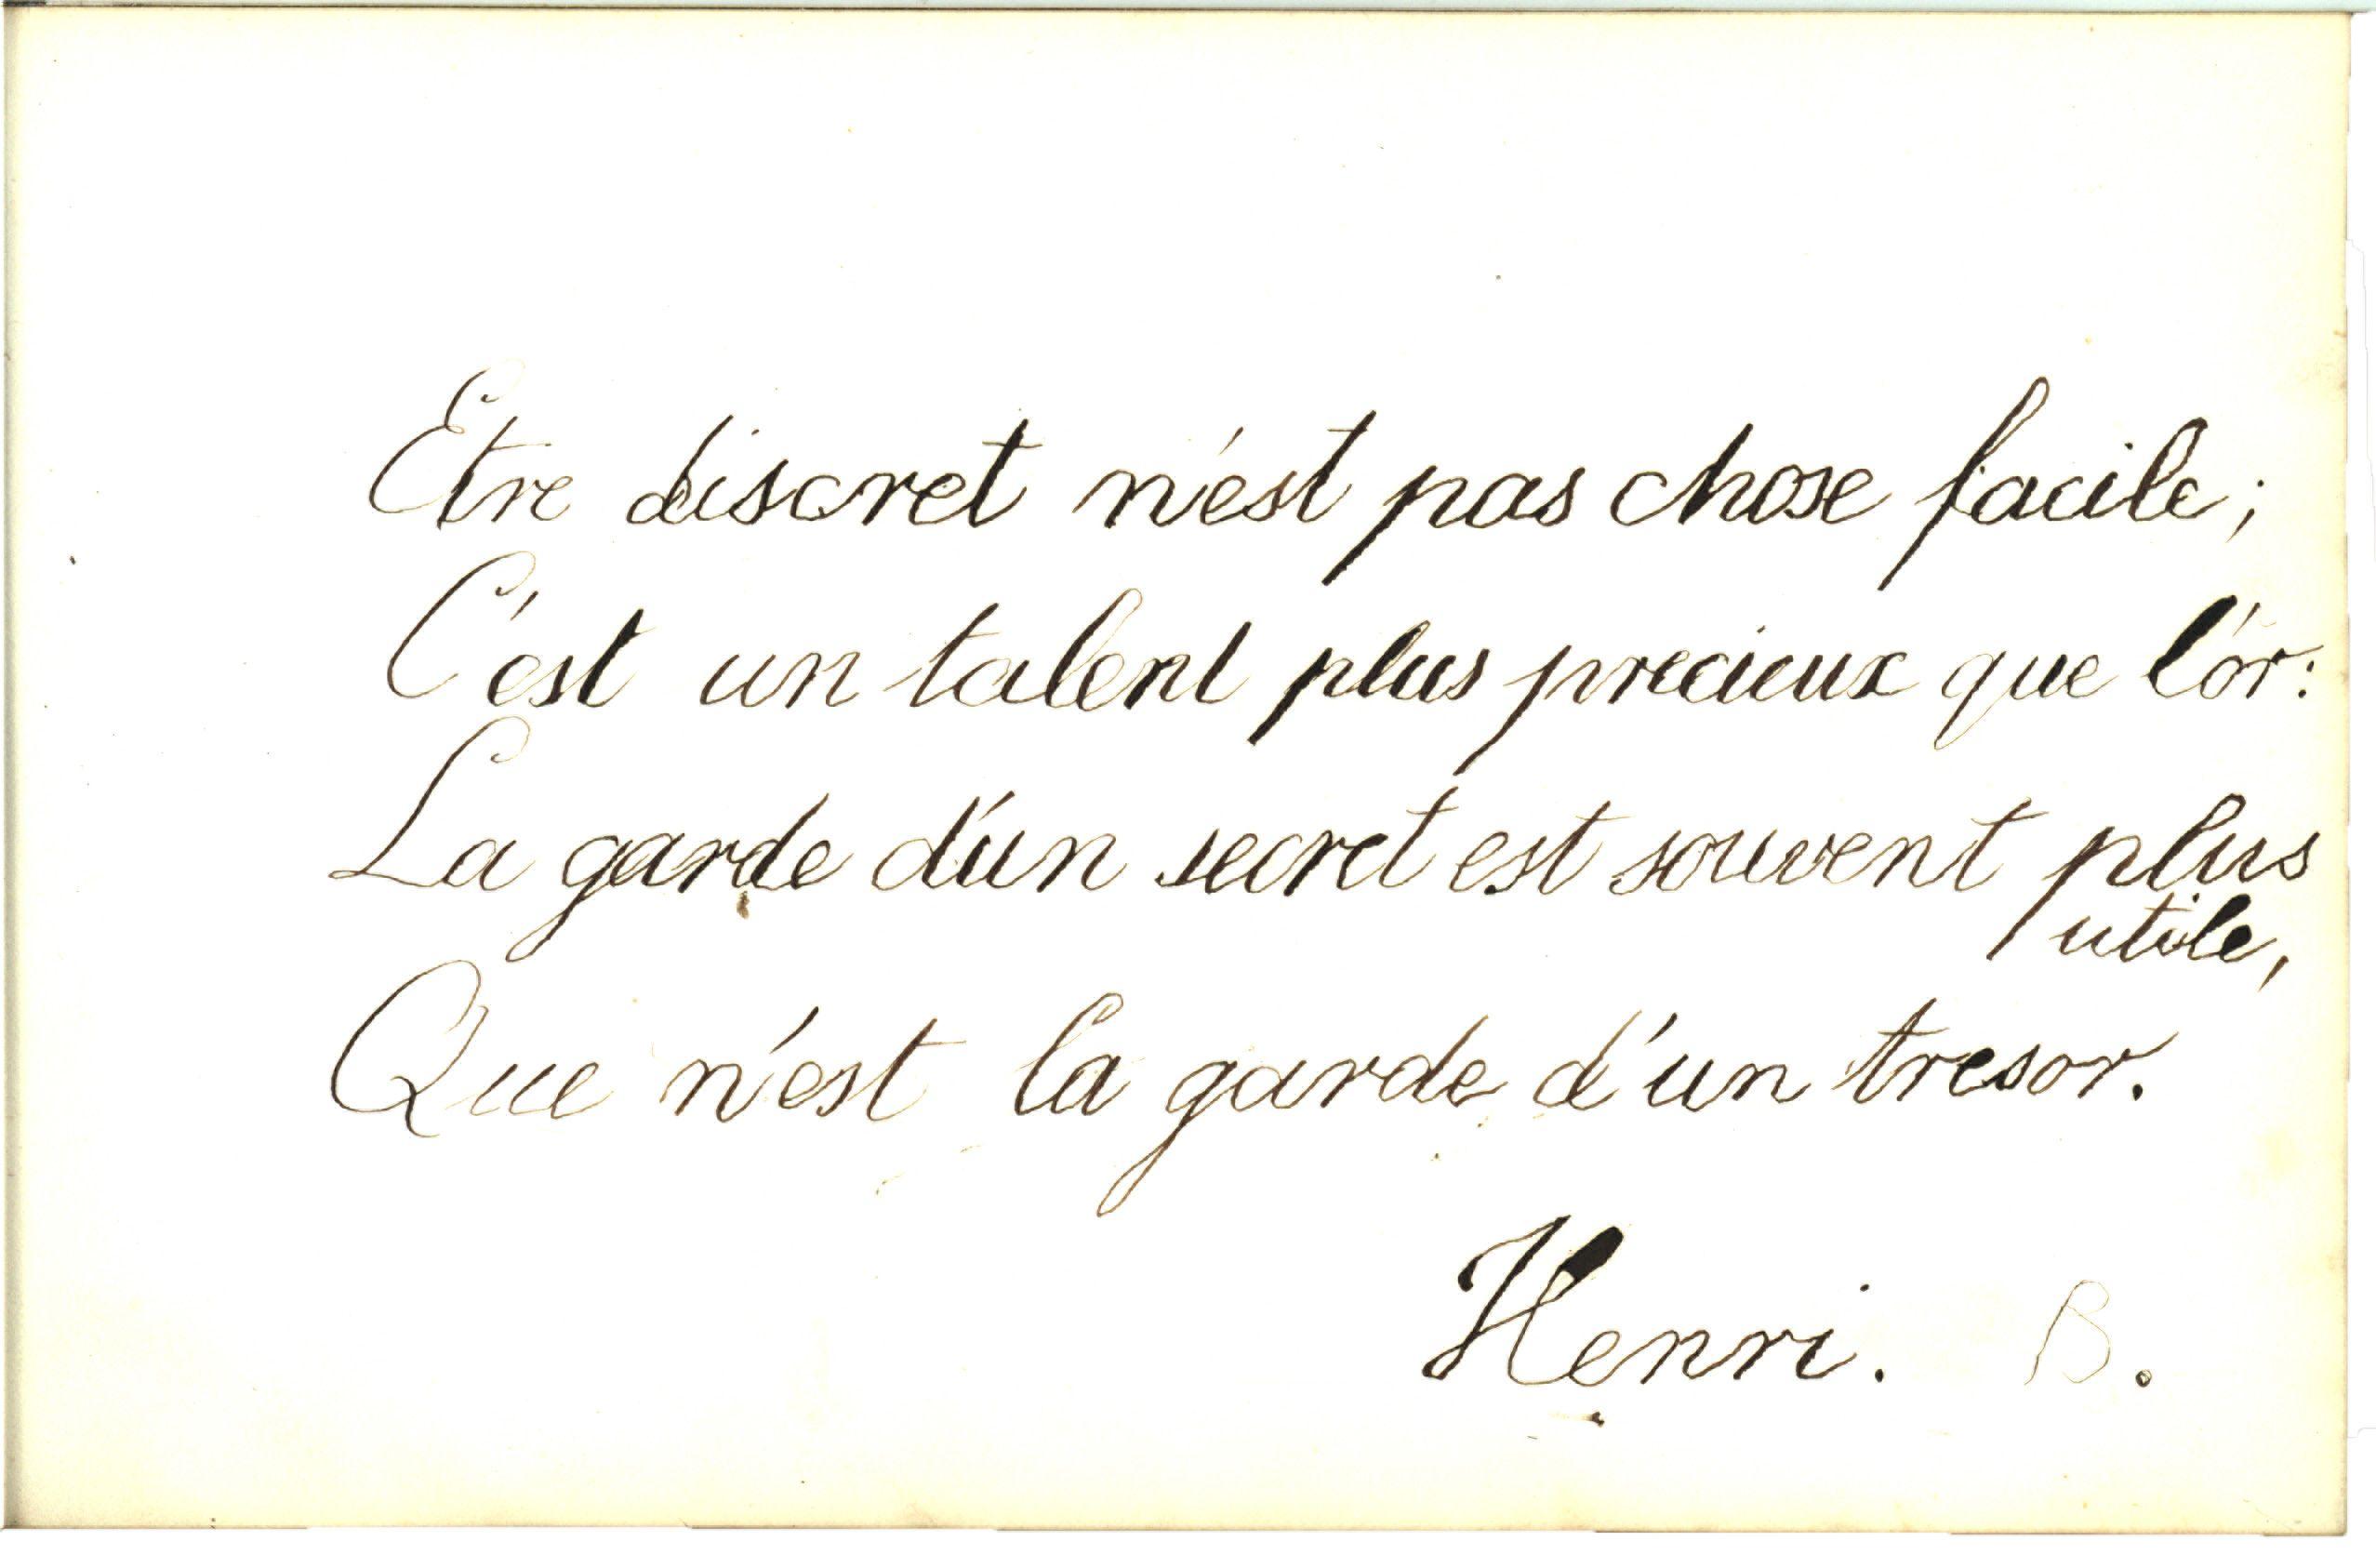 Etre discret n'est pas chose facile;
C'est un talent plus precieux que l'or:
La garde d'un secret est souvent plus
utile,
Que n'est la garde d'un tresor.
Henri. B.